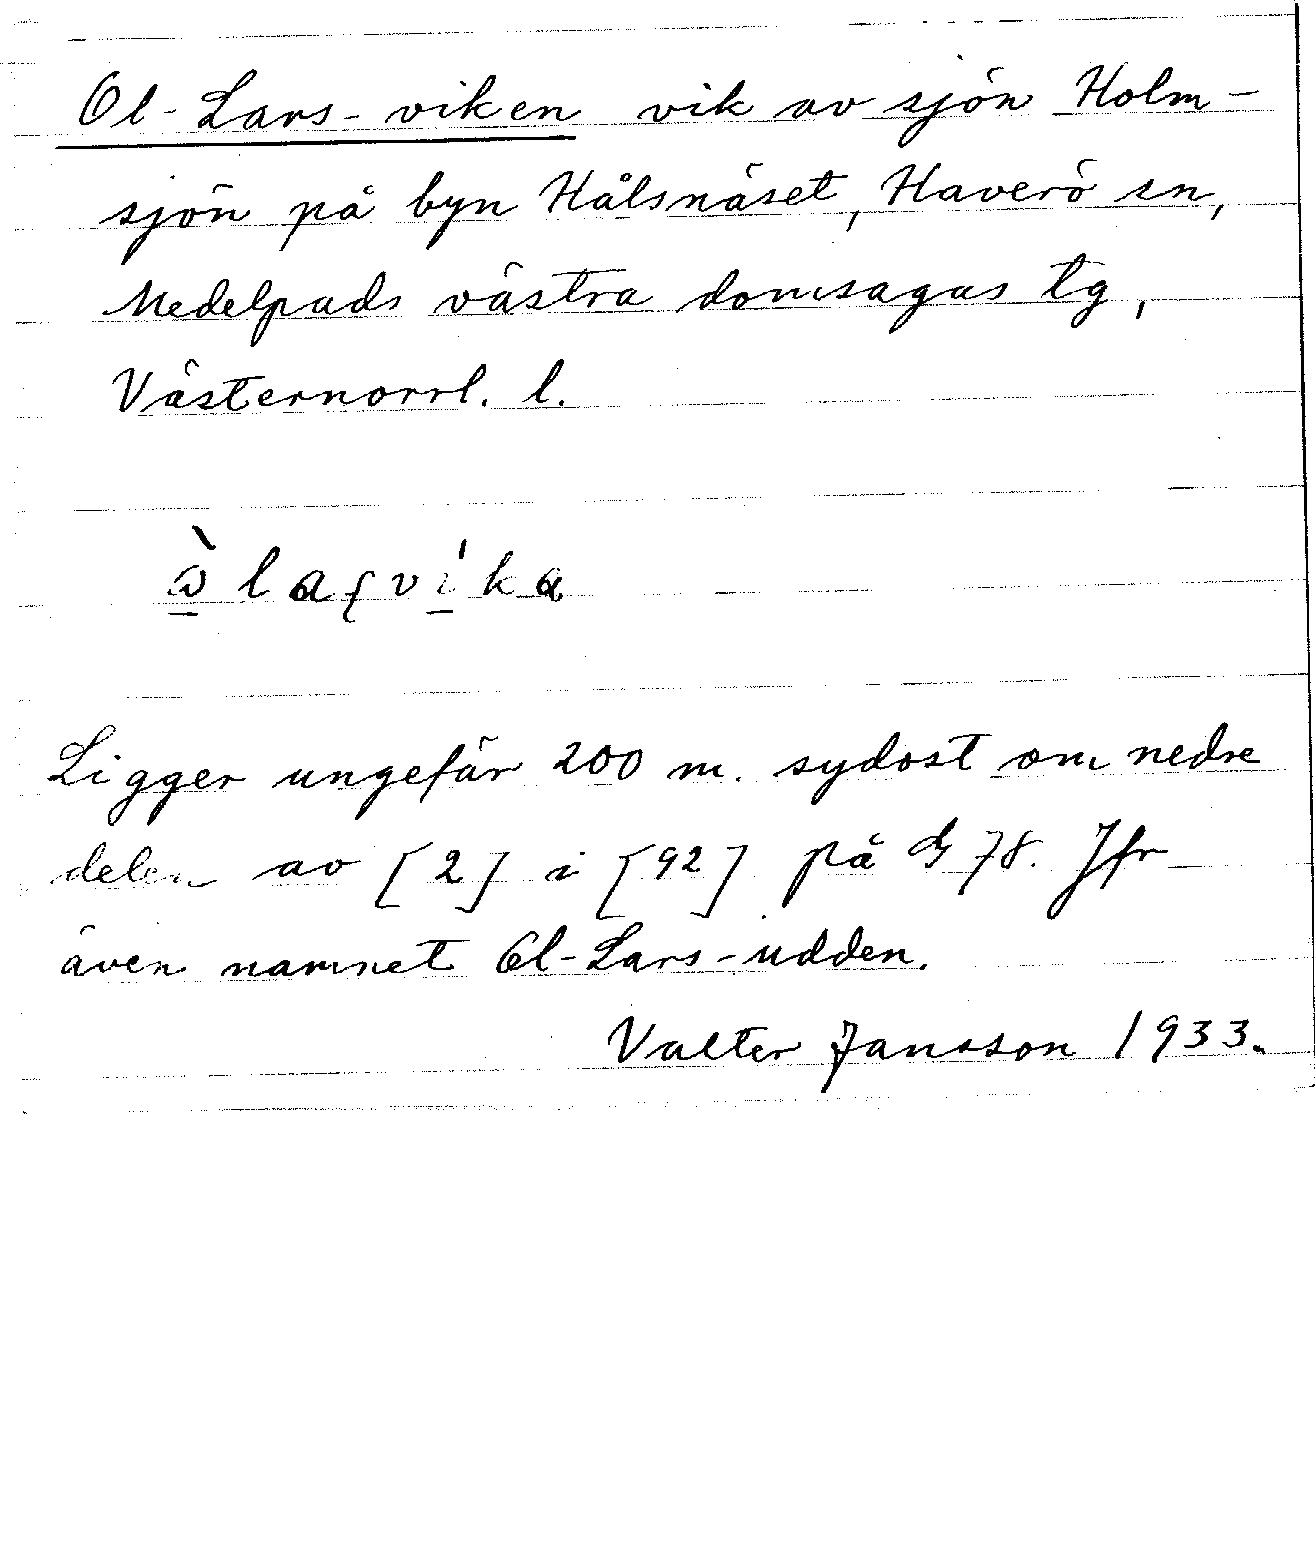 Ol-Lars-viken vik av sjön Holm-
sjön på byn Hålsnäset, Haverö sn,
Medelpads västra domsagas tg,
Västernorrl. l.
Ligger ungefär 200 m. sydost om nedre
delen av [2] i [92] på G 78. Jfr
även namnet Ol-Lars-udden.
Valter Jansson 1933.